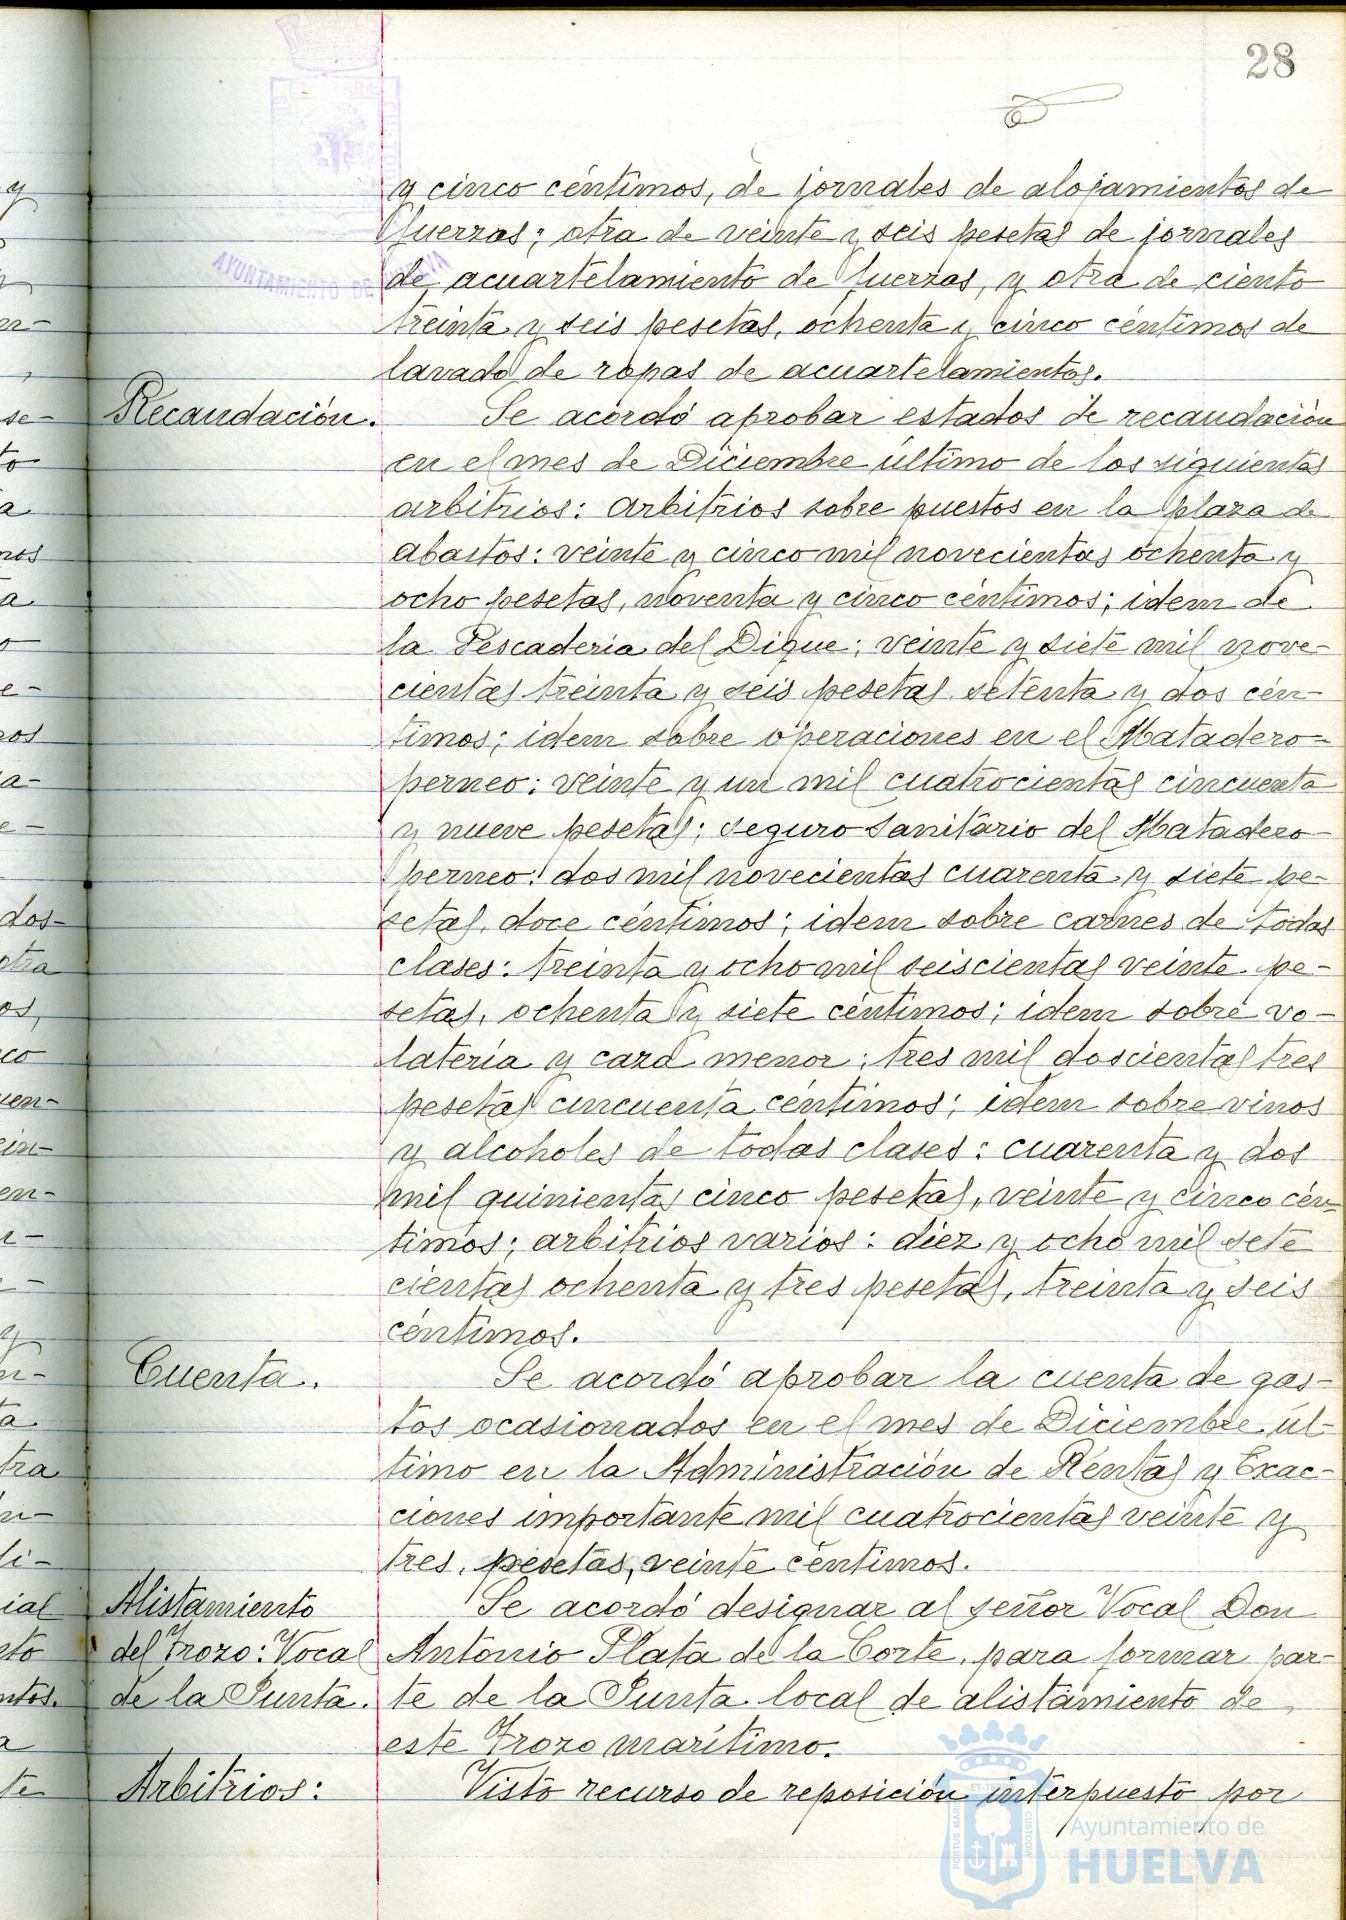 28
AYUNTAMIENTO DE HUELVA
y cinco céntimos, de jornales de alojamientos de
fuerzas; otra de veinte y seis pesetas de jornales
de acuartelamiento de fuerzas, y otra de ciento
treinta y seis pesetas, ochenta y cinco céntimos de
lavado de ropas de acuartelamientos.
Recaudación.
Se acordó aprobar estados de recaudación
en el mes de Diciembre último de los siguientes
arbitrios: Arbitrios sobre puestos en la plaza de
abastos: veinte y cinco mil novecientas ochenta y
ocho pesetas, noventa y cinco céntimos; idem de
la Pescadería del Dique; veinte y siete mil nove-
cientas treinta y seis pesetas setenta y dos cén-
timos; idem sobre operaciones en el Matadero-
perneo: veinte y un mil cuatrocientas cincuenta
y nueve pesetas; seguro sanitario del Matadero-
perneo: dos mil novecientas cuarenta y siete pe-
setas, doce céntimos; idem sobre carnes de todas
clases: treinta y ocho mil seiscientas veinte pe-
setas, ochenta y siete céntimos; idem sobre vo-
latería y caza menor: tres mil doscientas tres
pesetas cincuenta céntimos; idem sobre vinos
y alcoholes de todas clases: cuarenta y dos
mil quinientas cinco pesetas, veinte y cinco cén-
timos; arbitrios varios: diez y ocho mil sete
cientas ochenta y tres pesetas, treinta y seis
céntimos.
Cuenta.
Se acordó aprobar la cuenta de gas-
tos ocasionados en el mes de Diciembre úl-
timo en la Administración de Rentas y Exac-
ciones importante mil cuatrocientas veinte y
tres, pesetas, veinte céntimos.
Alistamiento
del Trozo: Vocal
de la Junta.
Se acordó designar al señor Vocal Don
Antonio Plata de la Corte, para formar par-
te de la Junta local de alistamiento de
este Trozo marítimo.
Arbitrios:
Visto recurso de reposición interpuesto por
Ayuntamiento de
HUELVA